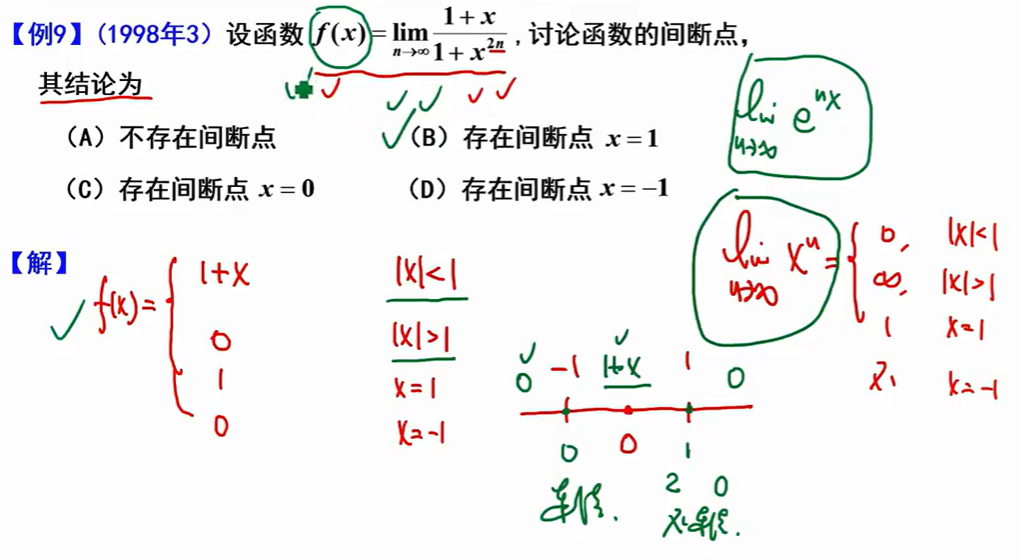 【例9】(1998年3) 设函数 f(x)=lim n→∞ (1+x)/(1+x^{2n}), 讨论函数的间断点,
其结论为
(A) 不存在间断点 (B) 存在间断点 x=1
(C) 存在间断点 x=0 (D) 存在间断点 x=-1
lim n→∞ e^{nx}
【解】 f(x)= { 1+x |x|<1
0 |x|>1
1 x=1
0 x=-1
lim n→∞ x^n = { 0, |x|<1
∞, |x|>1
1 x=1
不, x=-1
0 -1 1+x 1 0
0 0 1
2 0
连续. 不连续.